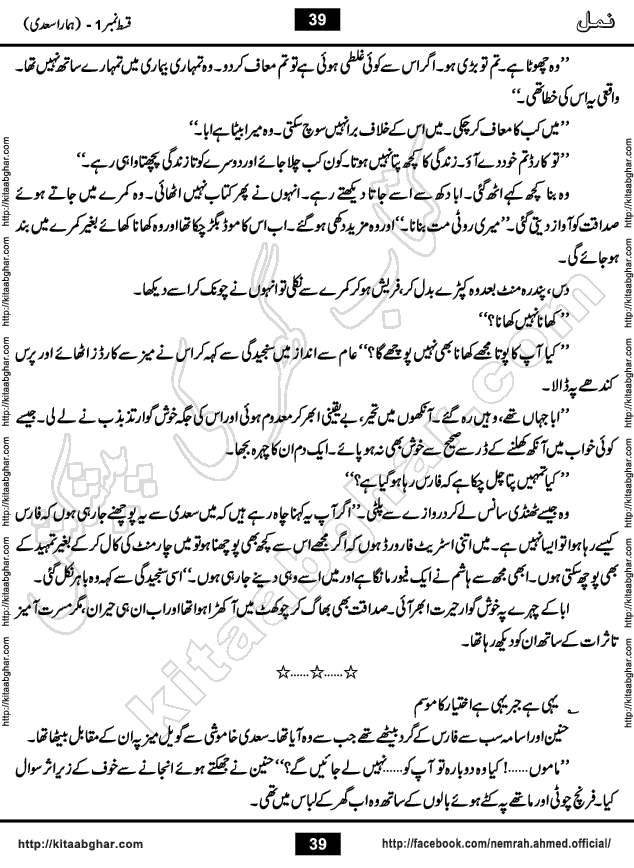 نمل
39
قسط نمبر 1 - (ہمارا سعدی)
’’وہ چھوٹا ہے۔ تم تو بڑی ہو۔ اگر اس سے کوئی غلطی ہوئی ہے تو تم معاف کر دو۔ وہ تمہاری بیماری میں تمہارے ساتھ نہیں تھا۔
واقعی یہ اس کی خطا تھی۔‘‘
’’میں کب کا معاف کر چکی۔ میں اس کے خلاف برا نہیں سوچ سکتی۔ وہ میرا بیٹا ہے ابا۔‘‘
’’تو کارڈ تم خود دے آؤ۔ زندگی کا کچھ پتا نہیں ہوتا۔ کون کب چلا جائے اور دوسرے کو تا زندگی پچھتاوا ہی رہے۔‘‘
وہ بنا کچھ کہے اٹھ گئی۔ ابا دکھ سے اسے جاتا دیکھتے رہے۔ انہوں نے پھر کتاب نہیں اٹھائی۔ وہ کمرے میں جاتے ہوئے
صداقت کو آواز دیتی گئی۔ ’’میری روٹی مت بنانا۔‘‘ اور وہ مزید دکھی ہو گئے۔ اب اس کا موڈ بگڑ چکا تھا اور وہ کھانا کھائے بغیر کمرے میں بند
ہو جائے گی۔
دس، پندرہ منٹ بعد وہ کپڑے بدل کر، فریش ہو کر کمرے سے نکلی تو انہوں نے چونک کر اسے دیکھا۔
’’کھانا نہیں کھانا؟‘‘
’’کیا آپ کا پوتا مجھے کھانا بھی نہیں پوچھے گا؟‘‘ عام سے انداز میں سنجیدگی سے کہہ کر اس نے میز سے کارڈز اٹھائے اور پرس
کندھے پہ ڈالا۔
’’ابا جہاں تھے، وہیں رہ گئے۔ آنکھوں میں تحیر، بے یقینی ابھر کر معدوم ہوئی اور اس کی جگہ خوش گوار تذبذب نے لے لی۔ جیسے
کوئی خواب میں آنکھ کھلنے کے ڈر سے صحیح سے خوش بھی نہ ہو پائے۔ ایک دم ان کا چہرہ بجھا۔
’’کیا تمہیں پتا چل چکا ہے کہ فارس رہا ہو گیا ہے؟‘‘
وہ جیسے ٹھنڈی سانس لے کر دروازے سے پلٹی۔ ’’اگر آپ یہ کہنا چاہ رہے ہیں کہ میں سعدی سے یہ پوچھنے جا رہی ہوں کہ فارس
کیسے رہا ہوا تو ایسا نہیں ہے۔ میں اتنی اسٹریٹ فارورڈ ہوں کہ اگر مجھے اس سے کچھ بھی پوچھنا ہو تو میں چار منٹ کی کال کر کے بغیر تمہید کے
بھی پوچھ سکتی ہوں۔ ابھی مجھ سے ہاشم نے ایک فیور مانگا ہے اور میں اسے وہی دینے جا رہی ہوں۔‘‘ اسی سنجیدگی سے کہہ وہ باہر نکل گئی۔
ابا کے چہرے پہ خوش گوار حیرت ابھر آئی۔ صداقت بھی بھاگ کر چوکھٹ میں آ کھڑا ہوا تھا اور اب ان ہی حیران، مگر مسرت آمیز
تاثرات کے ساتھ ان کو دیکھ رہا تھا۔
☆......☆......☆
؎ یہی ہے جبر یہی ہے اختیار کا موسم
حنین اور اسامہ سب سے فارس کے گرد بیٹھے تھے جب سے وہ آیا تھا۔ سعدی خاموشی سے گویل میز پہ ان کے مقابل بیٹھا تھا۔
’’ماموں......! کیا وہ دوبارہ تو آپ کو......نہیں لے جائیں گے؟‘‘ حنین نے جھجکتے ہوئے انجانے سے خوف کے زیر اثر سوال
کیا۔ فرنچ چوٹی اور ماتھے پہ کٹے ہوئے بالوں کے ساتھ وہ اب گھر کے لباس میں تھی۔
http://kitaabghar.com
39
http://facebook.com/nemrah.ahmed.official/
http://kitaabghar.com http://kitaabghar.com http://kitaabghar.com http://kitaabghar.com http://kitaabghar.com http://kitaabghar.com
http://kitaabghar.com http://kitaabghar.com http://kitaabghar.com http://kitaabghar.com http://kitaabghar.com http://kitaabghar.com
کتاب گھر کی پیشکش
kitaabghar.com